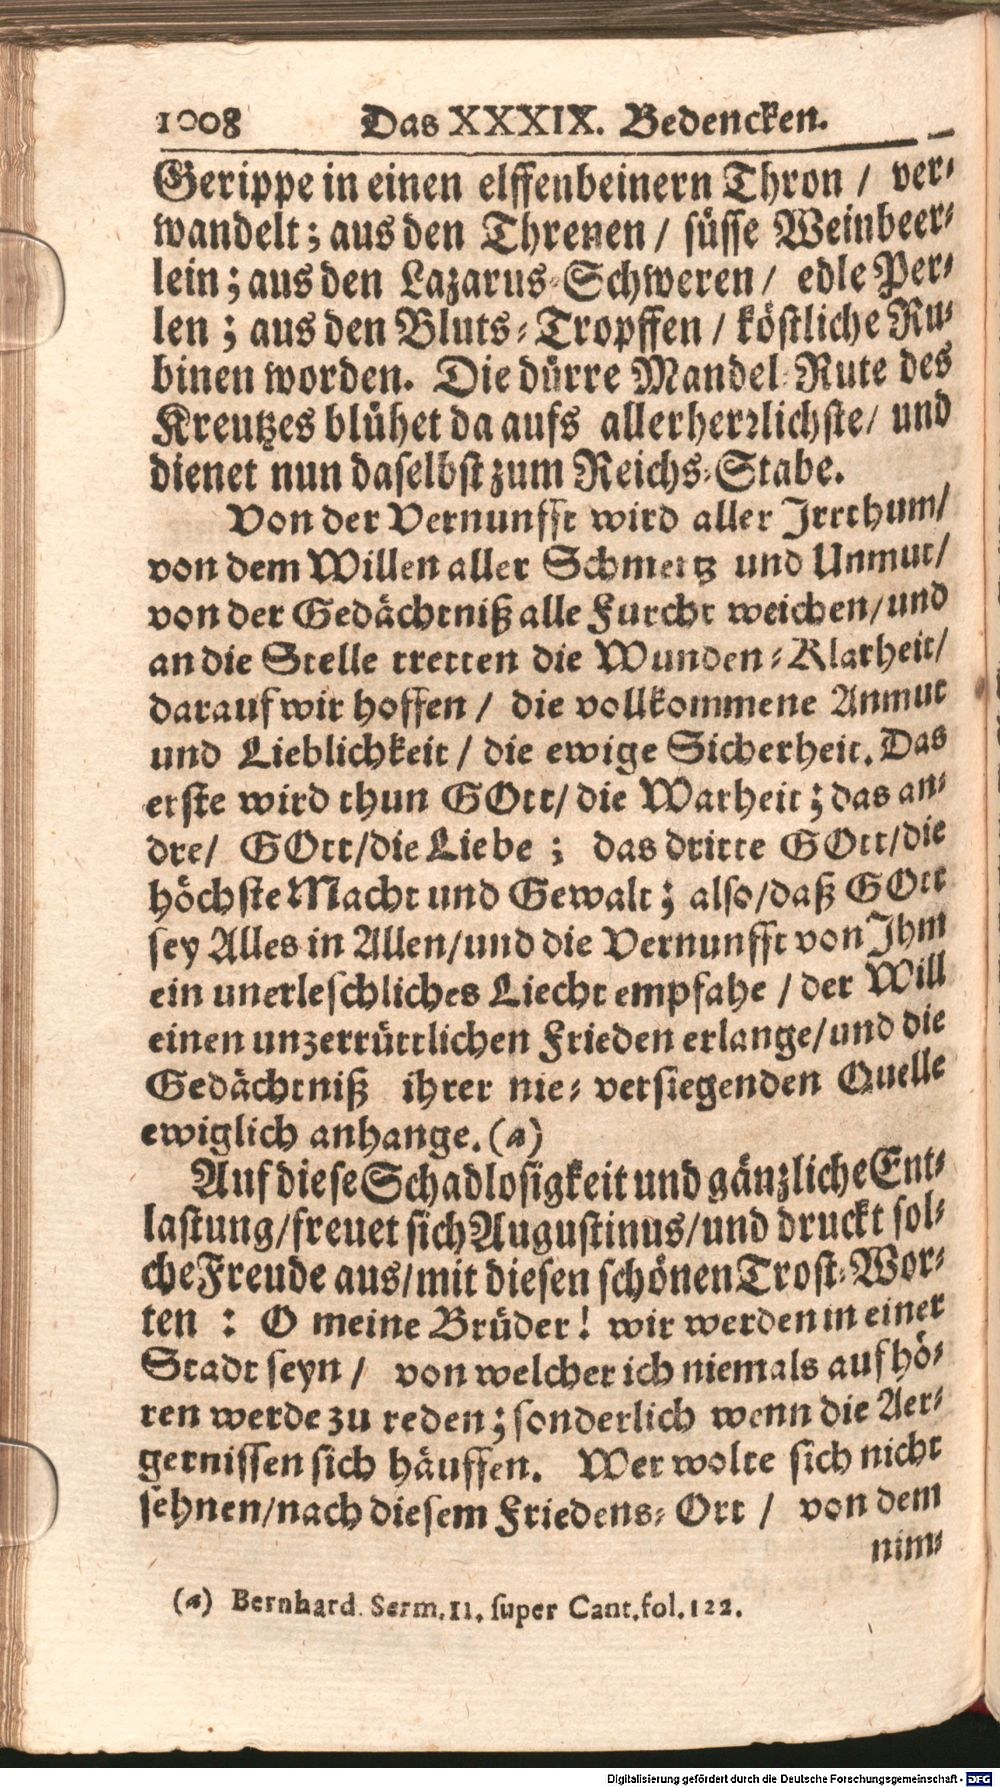 1008 Das XXXIX. Bedencken.
Gerippe in einen elffenbeinern Thron / ver-
wandelt; aus den Threnen / süsse Weinbeer-
lein; aus den Lazarus-Schweren / edle Per-
len; aus den Bluts-Tropffen / köstliche Ru-
binen worden. Die dürre Mandel-Rute des
Kreutzes blühet da aufs allerherrlichste / und
dienet nun daselbst zum Reichs-Stabe.
Von der Vernunfft wird aller Irrthum /
von dem Willen aller Schmertz und Unmut /
von der Gedächtniß alle Furcht weichen / und
an die Stelle tretten die Wunden-Klarheit /
darauf wir hoffen / die vollkommene Anmut
und Lieblichkeit / die ewige Sicherheit. Das
erste wird thun GOtt / die Warheit; das an-
dre / GOtt / die Liebe; das dritte GOtt / die
höchste Macht und Gewalt; also / daß GOtt
sey Alles in Allen / und die Vernunfft von Ihm
ein unerleschliches Liecht empfahe / der Will
einen unzerrüttlichen Frieden erlange / und die
Gedächtniß ihrer nie-versiegenden Quelle
ewiglich anhange. (a)
Auf diese Schadlosigkeit und gänzliche Ent-
lastung / freuet sich Augustinus / und druckt sol-
che Freude aus / mit diesen schönen Trost-Wor-
ten: O meine Brüder! wir werden in einer
Stadt seyn / von welcher ich niemals aufhö-
ren werde zu reden; sonderlich wenn die Aer-
gernissen sich häuffen. Wer wolte sich nicht
sehnen / nach diesem Friedens-Ort / von dem
nim-
(a) Bernhard. Serm. 11. super Cant. fol. 122.
Digitalisierung gefördert durch die Deutsche Forschungsgemeinschaft - DFG